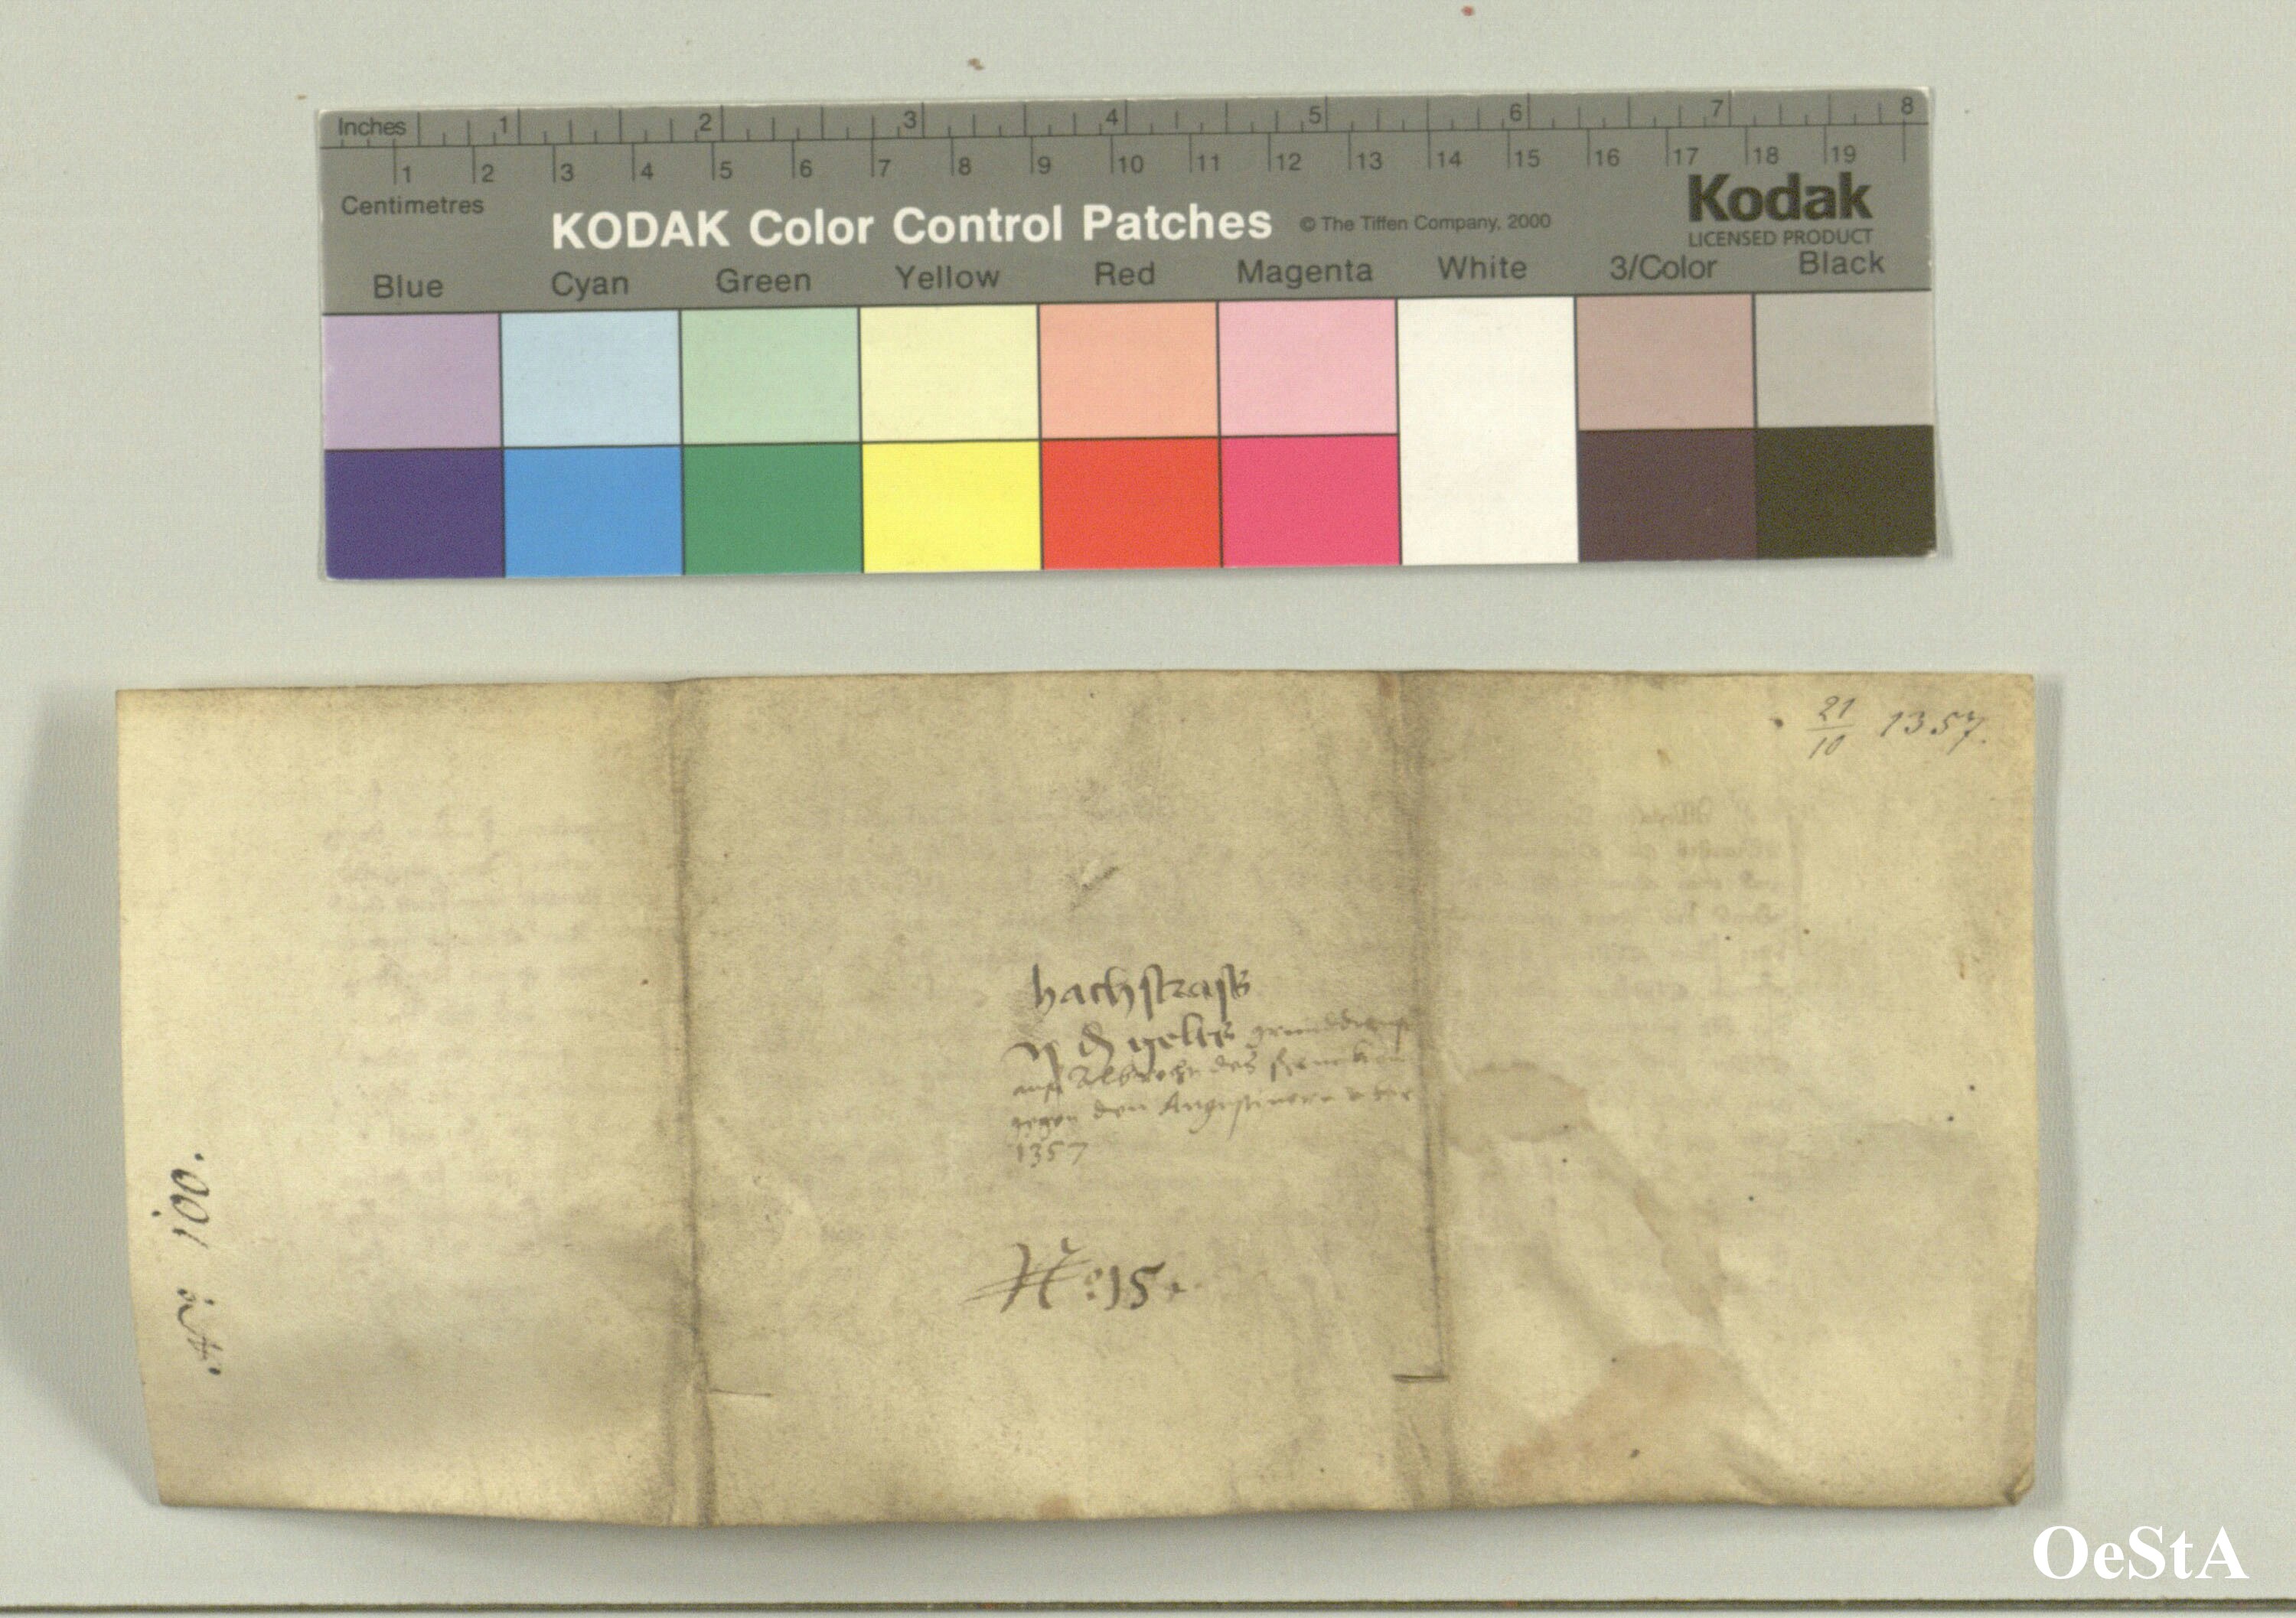 Inches 1 2 3 4 5 6 7 8
1 2 3 4 5 6 7 8 9 10 11 12 13 14 15 16 17 18 19
Centimetres
KODAK Color Control Patches © The Tiffen Company, 2000
Kodak
LICENSED PRODUCT
Blue Cyan Green Yellow Red Magenta White 3/Color Black
21/10 1357.
hachstrass
gelts grunddienst
auf Albrecht des
gegen den Augustinern
1357
No: 15.
No: 100.
OeStA